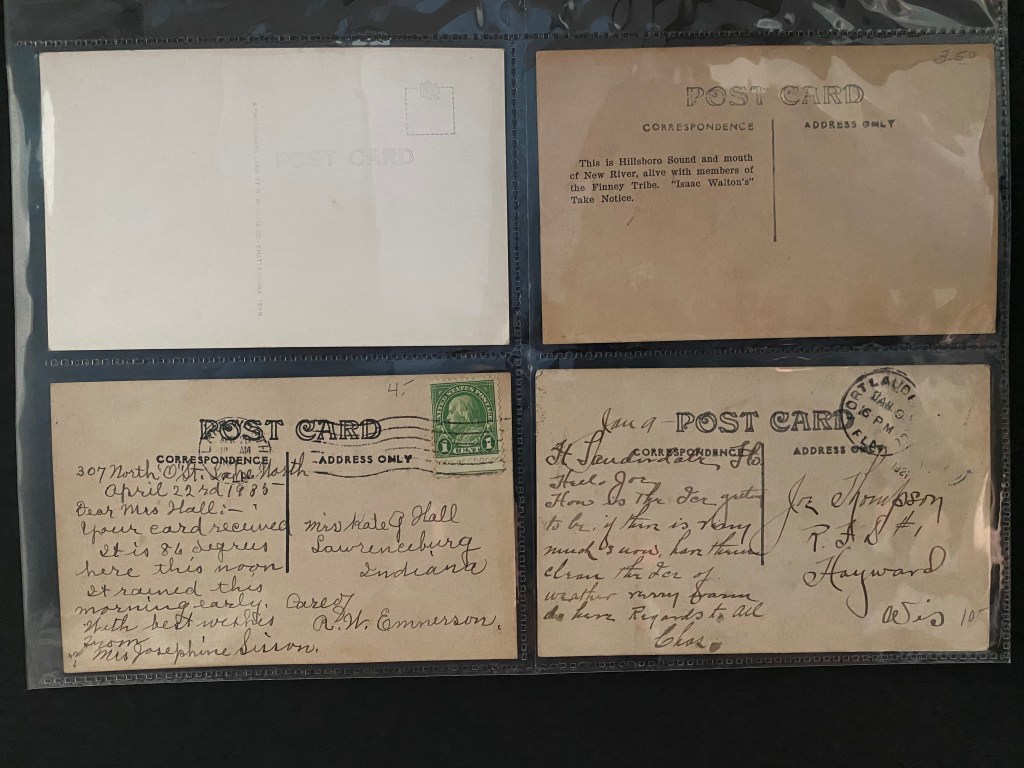 POST CARD
3.50
POST CARD
CORRESPONDENCE
ADDRESS ONLY
This is Hillsboro Sound and mouth
of New River, alive with members of
the Finney Tribe. "Isaac Walton's"
Take Notice.
4.-
UNITED STATES POSTAGE
1 CENT 1
POST CARD
CORRESPONDENCE
ADDRESS ONLY
307 North "O" St. Lake Worth
April 22rd 1935-
Dear Mrs Hall:-
Your card received
It is 86 degrees
here this noon
It rained this
morning early.
With best wishes
From
Mrs Josephine Sisson.
Mrs Kate G Hall
Lawrenceburg
Indiana
Care of
R. W. Emnerson.
POST CARD
CORRESPONDENCE
ADDRESS ONLY
JAN 9
6 PM
FLA
Jan 9
Ft Lauderdale Fla
Hello Joe
How is the Ice
to be, if there is very
much snow,
clean the Ice of
weather very warm
do here Regards to All
Chas.
Joe Thompson
R. F. D #1
Hayward
Wis
10-